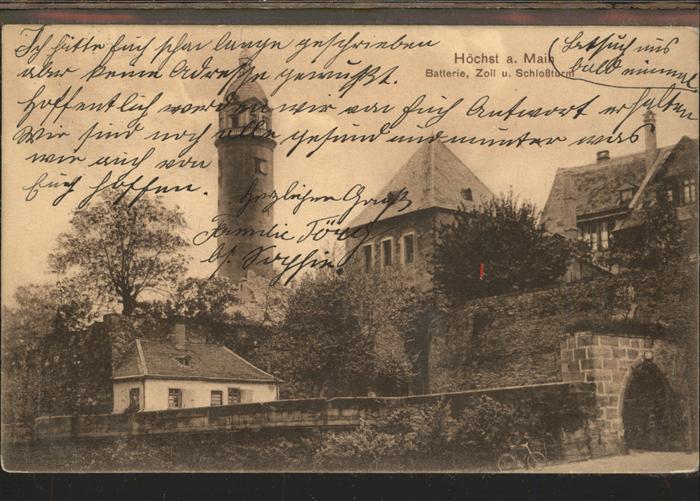 Ich hätte Euch schon lange geschrieben
aber keine Adresse gewußt.
Hoffentlich werden wir von Euch Antwort erhalten
Wir sind noch alle gesund und munter was
wir auch von
Euch hoffen.
Herzlichen Gruß
Familie
b. Sophie
Höchst a. Main
Batterie, Zoll u. Schloßturm
Besuch uns
bald einmal